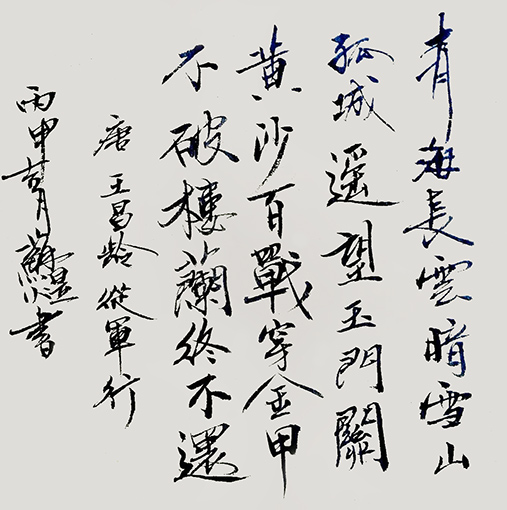 青海長雲暗雪山
孤城遥望玉門關
黄沙百戰穿金甲
不破樓蘭終不還
唐 王昌龄 從軍行
丙申 月 書